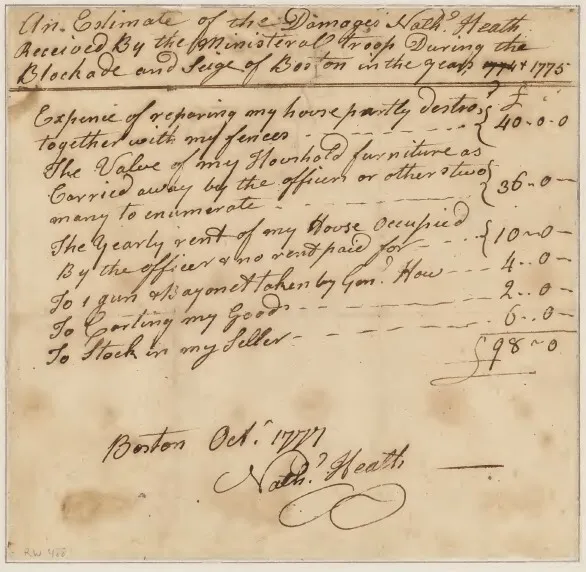 An Estimate of the Damages Nath.l Heath
Received By the Ministeral Troop During the
Blockade and Seige of Boston in the years 1774 & 1775
£
Expence of repairing my house partly destroy'd
together with my fences 40-0-0
The Value of my Houshold furniture as
Carried away by the officers or others two
many to enumerate 36-0-
The Yearly rent of my House Occupied
By the officer & no rent paid for 10-0-
To 1 gun & Bayonet taken by Gen.l How 4-0-
To Carting my Goods 2-0-
To Stock in my Seller 6-0-
98-0
Boston Oct.r 1777
Nath.l Heath
RW 488